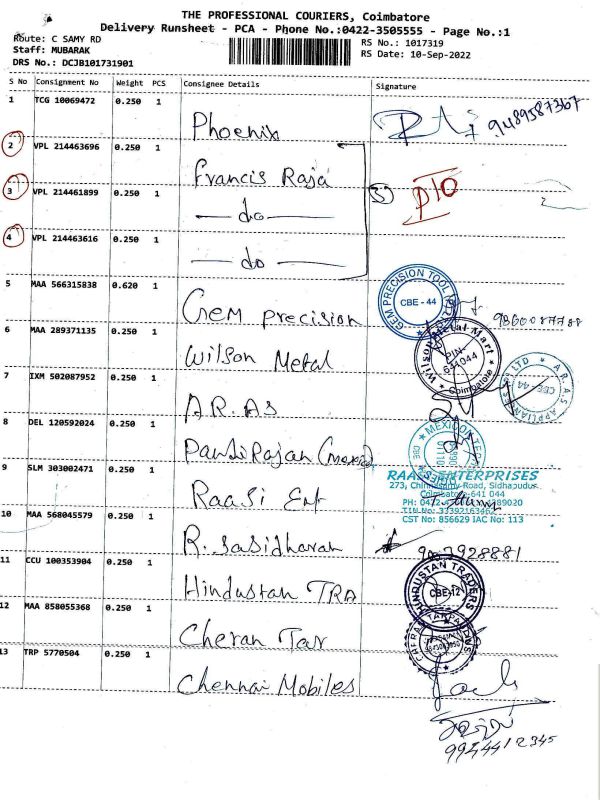 THE PROFESSIONAL COURIERS, Coimbatore
Delivery Runsheet - PCA - Phone No.:0422-3505555 - Page No.:1
Route: C SAMY RD
Staff: MUBARAK
DRS No.: DCJB101731901
RS No.: 1017319
RS Date: 10-Sep-2022
S No Consignment No Weight PCS Consignee Details Signature
1 TCG 10069472 0.250 1 Phoenix 9489587367
2 VPL 214463696 0.250 1 Francis Raja
3 VPL 214461899 0.250 1 — do — 3 PTO
4 VPL 214463616 0.250 1 — do —
5 MAA 566315838 0.620 1 Gem precision
GEM PRECISION TOOL
CBE - 44
6 MAA 289371135 0.250 1 Wilson Metal
Wilson Metal Mart
PIN
641044
Coimbatore
7 IXM 502087952 0.250 1 A.R.AS
A.R.A.S APPLIAN
LTD
CBE 44
8 DEL 120592024 0.250 1 PandiRajan (
9 SLM 303002471 0.250 1 Raasi Ent
RAASI ENTERPRISES
273, Road, Sidhapudur,
Coimbatore-641 044
CST No: 856629 IAC No: 113
10 MAA 568045579 0.250 1 R. Sasidharan
11 CCU 100353904 0.250 1 Hindustan TRA
HINDUSTAN TRADERS
CBE-12
12 MAA 858055368 0.250 1 Cheran Tar
13 TRP 5770504 0.250 1 Chennai Mobiles
9944412345